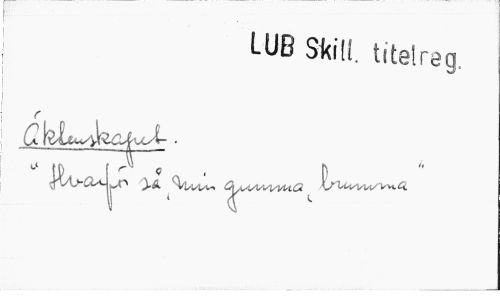 LUB Skill. titelreg.
Äktenskapet.
"Hvarför så, min gumma, brumma"